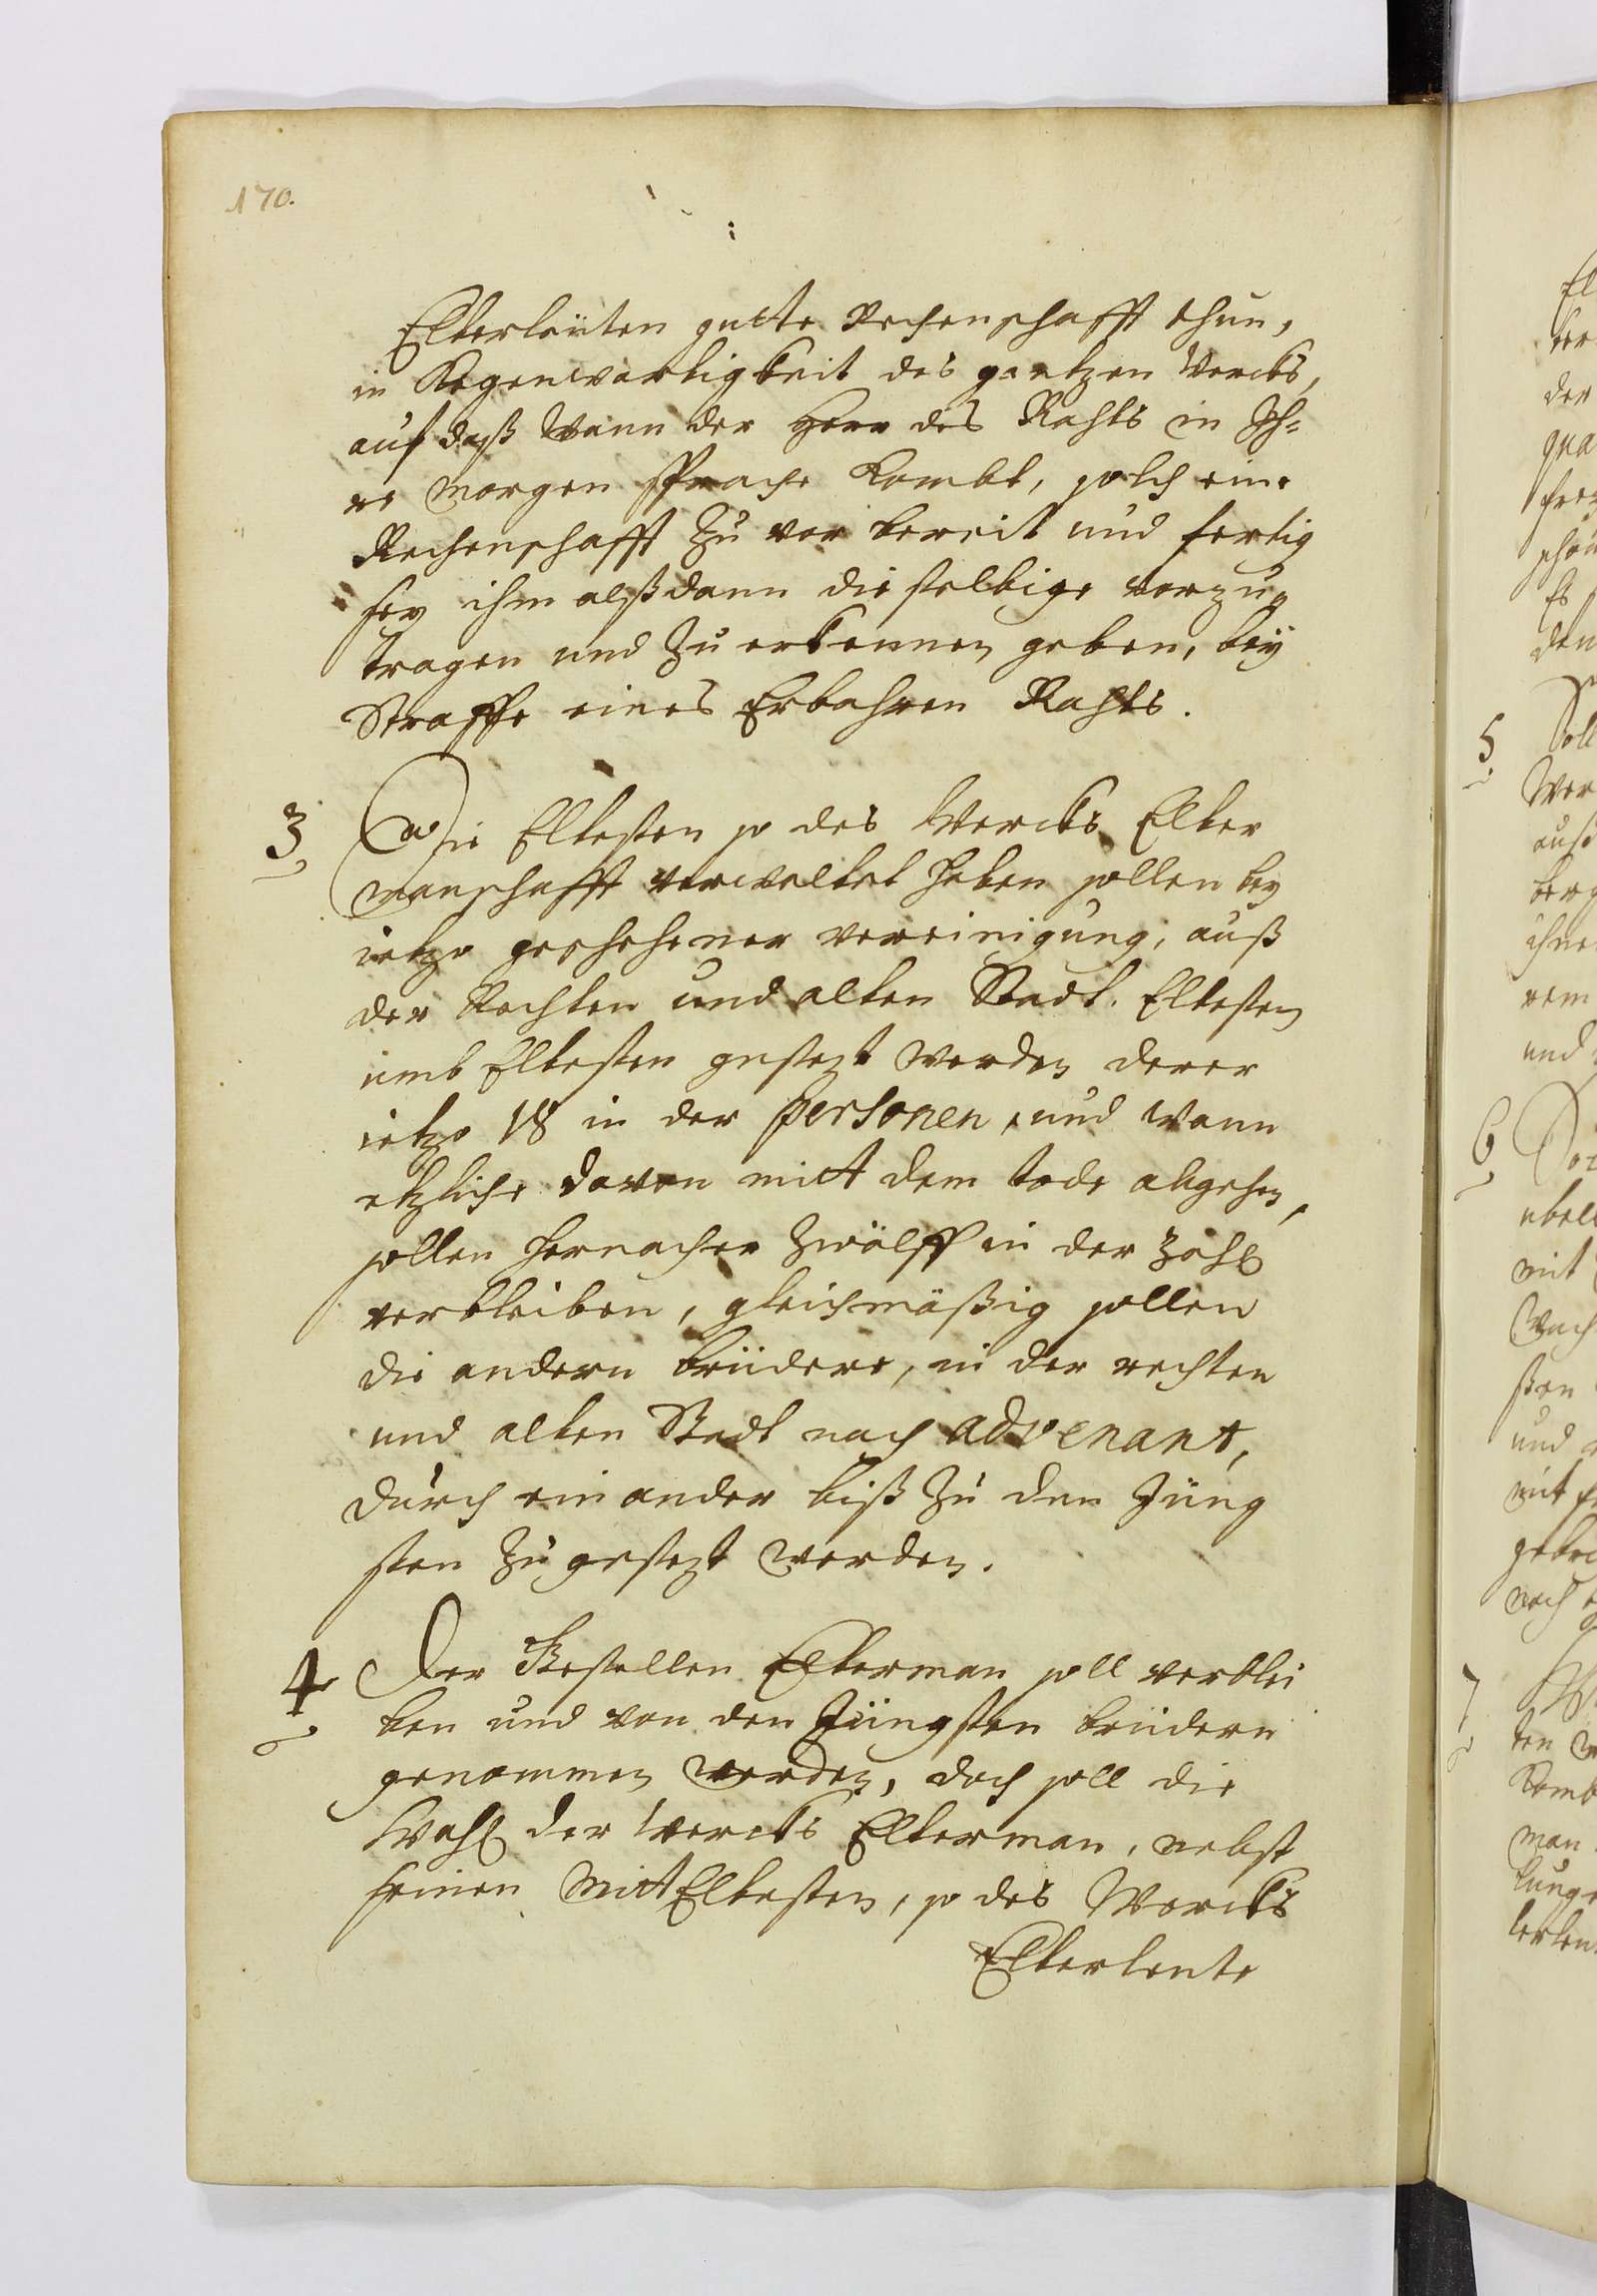 170.
Elterleüten gutte Rechenschafft thun,
in Kegenwartigkeit des gantzen Wercks,
auf daß wann der Herr des Rahts in Ih=
re morgen Sprache kombt, solch eine
Rechenschafft zu vor bereit und fertig
sey ihm alßdann die selbige vorzu=
tragen und zu erkennen geben, bey
Straffe eines Erbahren Rahts.
3 Die Eltesten so des Wercks Elter
manschafft verwaltet haben sollen bey
ietzo geschehener vereinigung, auß
der Rechten und alten Stadt. Eltesten
umb Eltesten gesezt werden derer
ietzo 18 in der personen, und wann
etzliche davon mitt dem tode abgehen,
sollen hernacher zwölff in der Zahl
verbleiben, gleichmäßig sollen
die andern brüdere, in der rechten
und alten Stadt nach advenant,
durch ein ander biß zu dem Jüng
sten zu gesezt werden.
4 Der Gesellen Elterman soll verblei
ben und von den Jüngsten brüdern
genommen werden, doch soll die
Wahl der Wercks Elterman, nebst
seinen Mitt Eltesten, so des Wercks
Elterleute
5
6
7